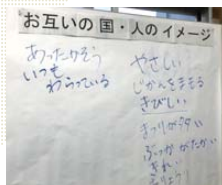 お互いの国・人のイメージ
あったかそう
いつも
わらっている
やさしい
じかんをまもる
きびしい
きつりが多い
ぶっかがたかい
きれい